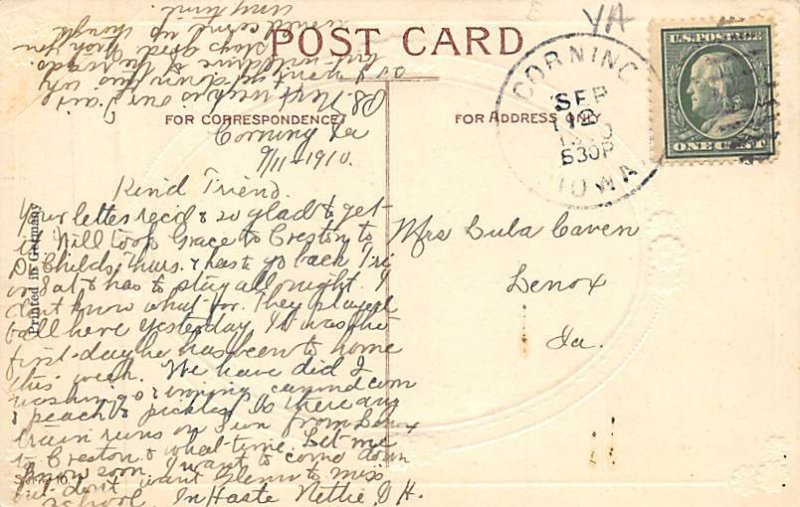 POST CARD
FOR CORRESPONDENCE
FOR ADDRESS ONLY
U.S. POSTAGE
ONE CENT
CORNING
SEP
12
1910
630P
IOWA
Printed in Germany
Corning Ia
9/11-1910.
Kind Friend.
Your letter rec'd & so glad to get
it Will took Grace to Creston to
Dr Childs, Thurs. & has to go back Fri
or Sat & has to stay all night. I
dont know what for. They played
ball here Yesterday. It was the
first day he has been to home
this week. We have did
washing & ironing canned corn
& peach & pickles Is there any
train runs on Sun from Lenox
to Creston & what time. Let me
know soon. I want to come down
but don't want Glenn to miss
school. In Haste Nettie. D H.
PS. Next week is our Fair
and
stays good. Wish you
canned corn is though
Mrs Lula Caven
Lenox
Ia.